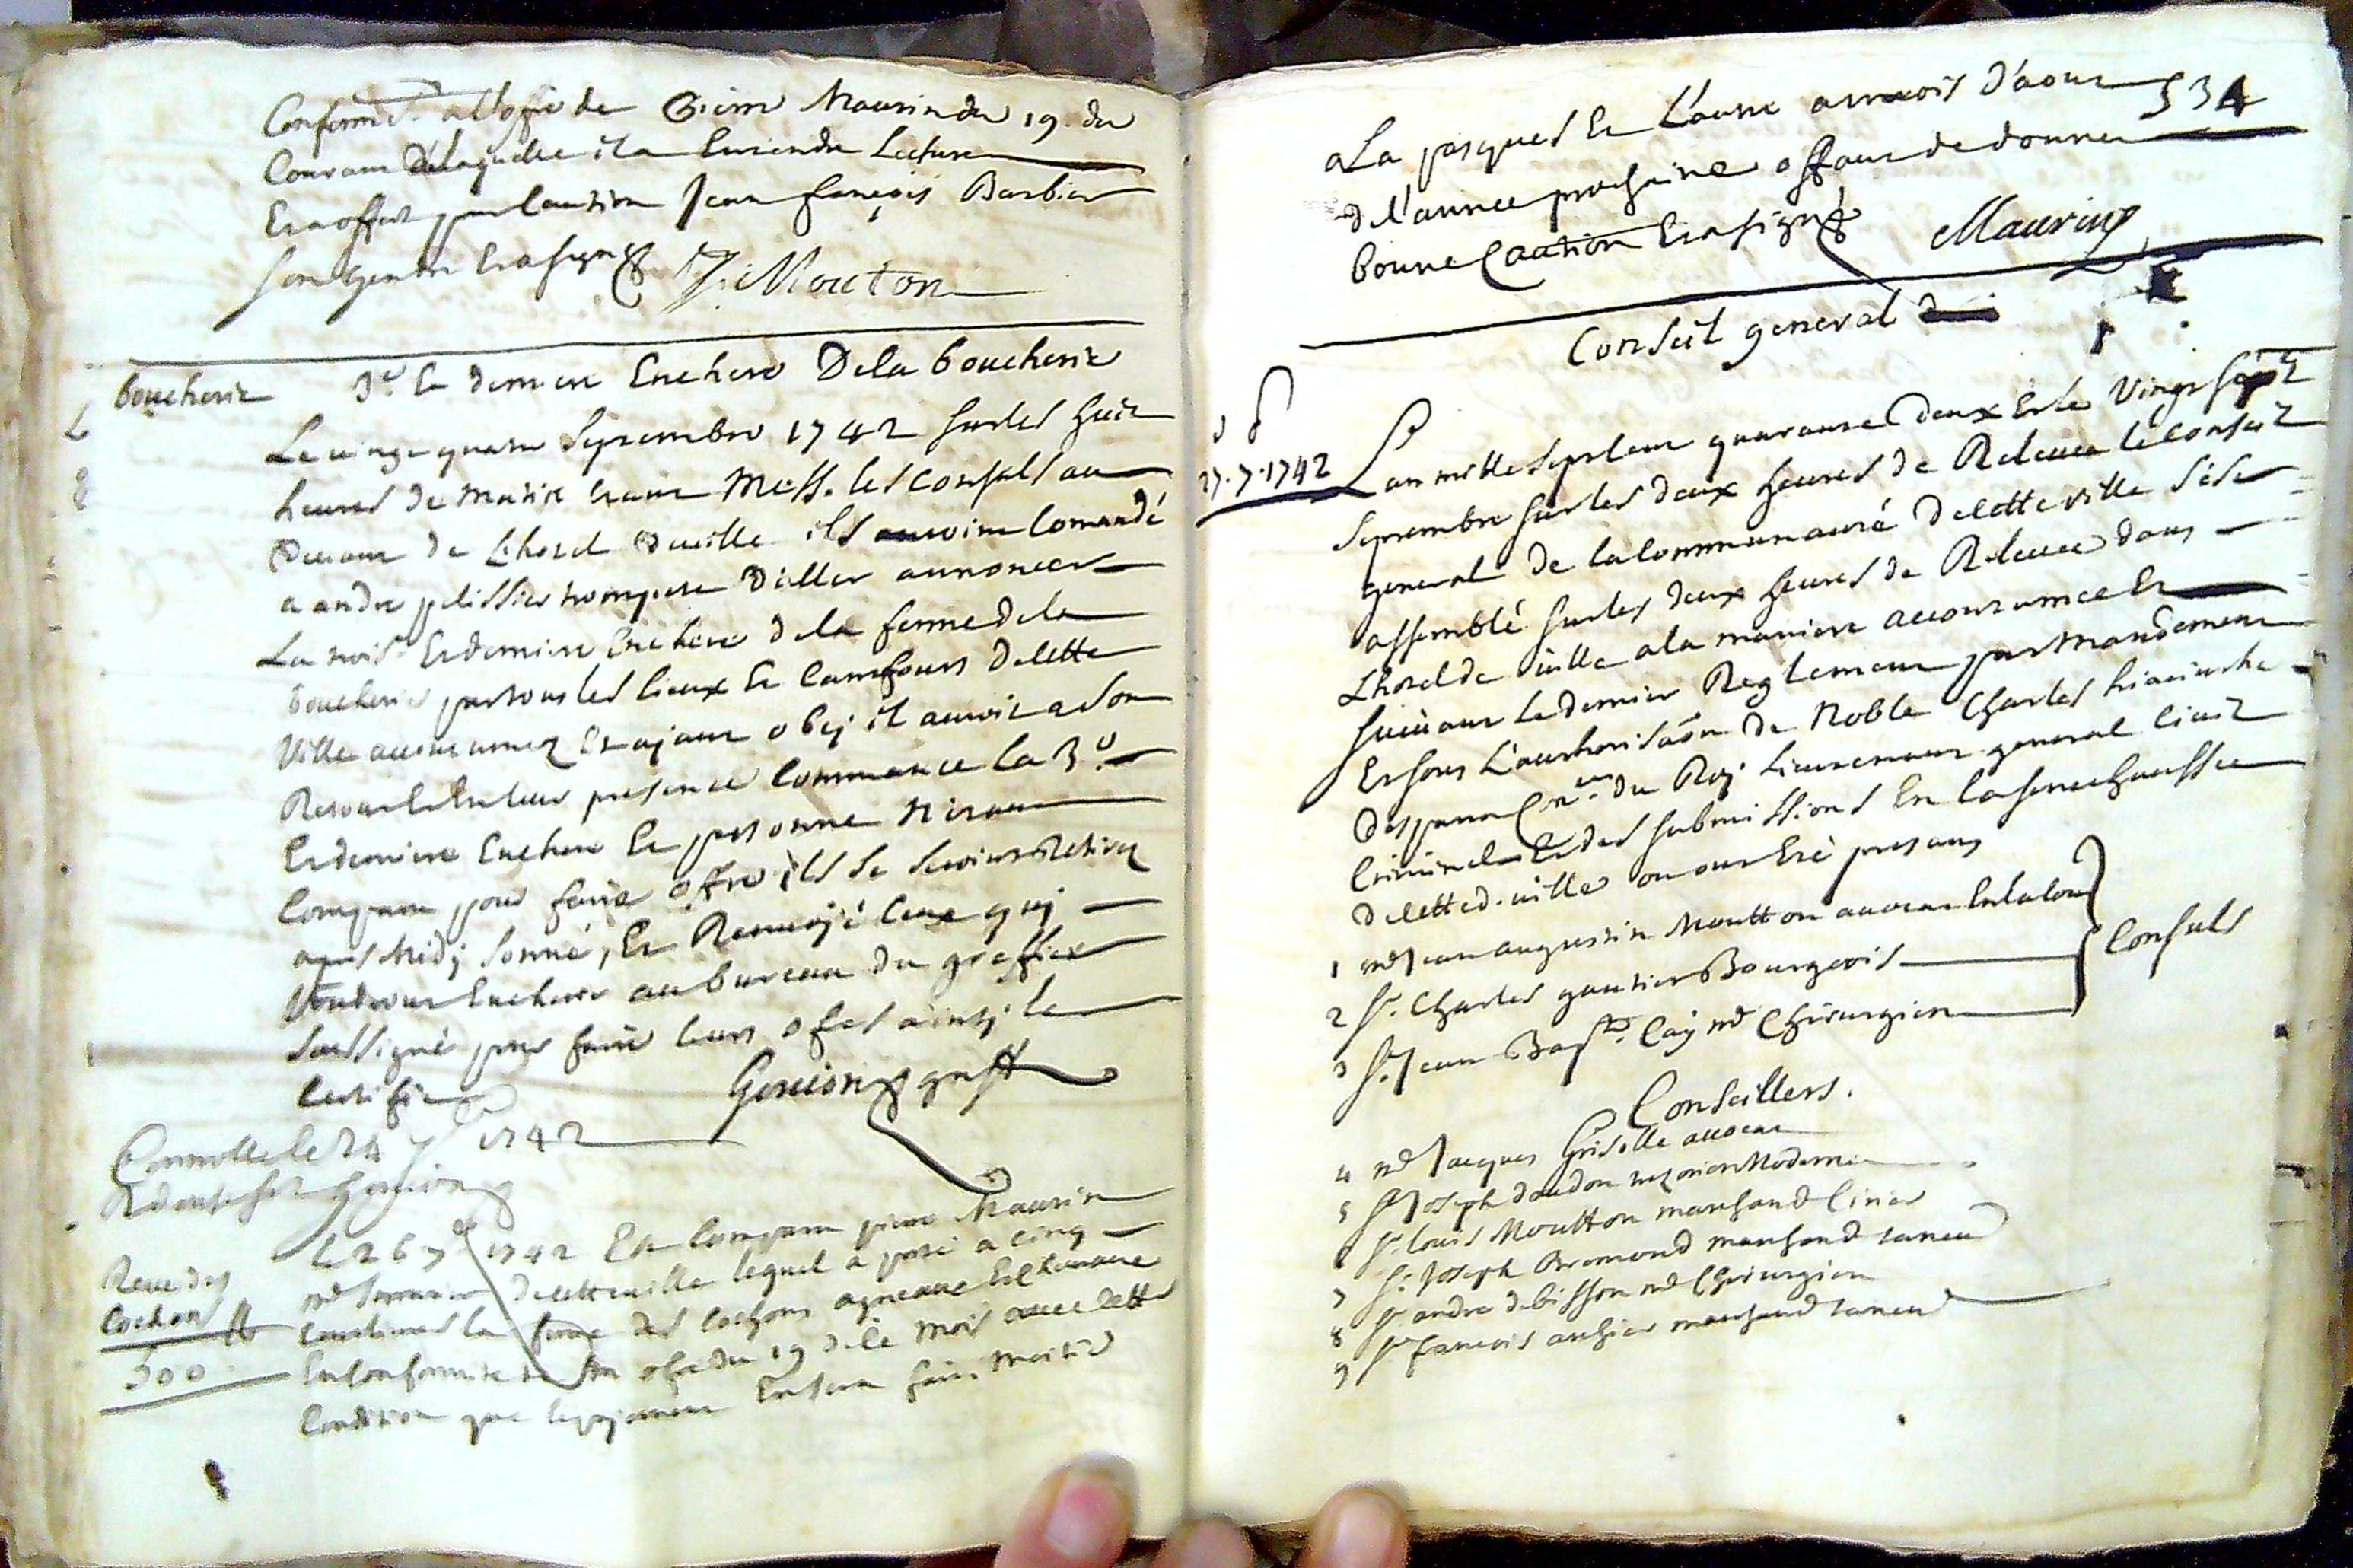 Conformet. a loffre de Maurin du 19. du
Courant de laquelle il a Entendu Lecture
Et a offert par Caution Jean françois Barbier
son gendre Et a signé J. Mouton
boucherie
3e. Et derniere Enchere De la boucherie
Le vingt quatre Septembre 1742 sur les huit
heures de matin Etant Mess. les Consuls au
Devant de Lhotel de ville ils auroint Comandé
a andre pelissier trompete D'aller annoncer
La trois. Et derniere Enchere de la ferme de la
boucherie par tous les lieux Et Carrefours de cette
Ville accoutumez Et ajant obej il auroit a son
Retour Et En leur presence Commancé la 3e.
Et derniere Enchere Et personne N'etant
Comparu pour faire offre ils se seroint Retirez
apres Midj sonné, Et Renvojé Ceux quj
Voudront Encherir au bureau du greffier
soussigné pour faire leurs ofres ainsj le
Certifie
Gouion greff
Controlle le 24 7bre 1742
Gouion
Reve des
Cochons
300
Le 26 7bre 1742 Est Comparu pierre Maurin
de cette ville lequel a porté a cinq
Cent livres la ferme des Cochons agneaux Et
En Conformite de son ofre du 19 de Ce Mois avec cette
Condition que le pajement En sera fait moitié
534
a La paques Et L'autre au mois D'aout
de l'annee prochaine offrant de donner
bonne Caution Et a signé Maurin
Conseil general
27.7.1742
L'an mille Sept Cent quarante Deux Et le Vingt sept
Septembre sur les deux heures de Relevée le Conseil
general de la Communauté de cette ville s'est
assemblé sur les deux heures de Relevée dans
Lhotel de ville a la maniere accoutumée Et
suivant le dernier Reglement par Mandement
Et sous L'authorisaôn de Noble Charles hiacinthe
Coner. du Roj Lieutenant general Civil
Criminel Et des submissions En la senechaussée
de cette d. ville ou ont Eté presans
1 me Jean augustin Moutton avocat En la Cour
2 Sr. Charles gautier Bourgeois
3 Sr. Jean Bapte. me Chirurgien
Consuls
Conseillers.
4 me Jacques Griselle avocat
5 Sr Joseph daudon
6 Sr. louis Moutton marchand Cirier
7 Sr. Joseph marchand taneur
8 Sr andre debisson me Chirurgien
9 Sr francois marchand taneur